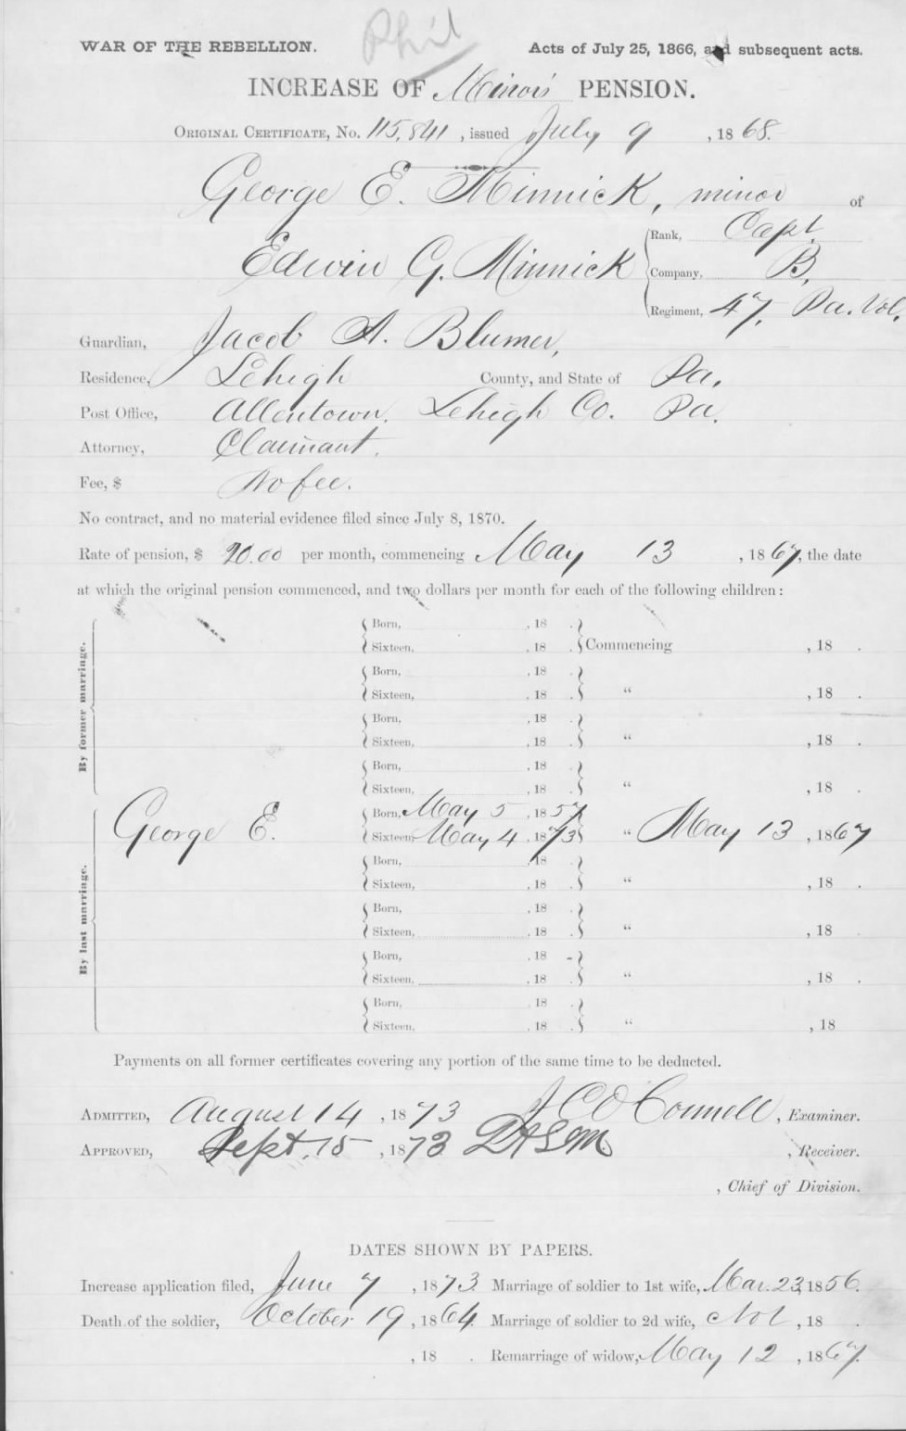 Phil
WAR OF THE REBELLION. Acts of July 25, 1866, and subsequent acts.
INCREASE OF Minor's PENSION.
ORIGINAL CERTIFICATE, NO. 115,841, issued July 9, 1868.
George E. Minnick, minor of
Edwin G. Minnick
Rank, Capt.
Company, B,
Regiment, 47, Pa. Vol.
Guardian, Jacob A. Blumer,
Residence, Lehigh County, and State of Pa.
Post Office, Allentown, Lehigh Co. Pa.
Attorney, Claimant.
Fee, $ No fee.
No contract, and no material evidence filed since July 8, 1870.
Rate of pension, $ 20.00 per month, commencing May 13, 1867, the date
at which the original pension commenced, and two dollars per month for each of the following children:
By former marriage.
Born, , 18 .
Sixteen, , 18 . Commencing , 18 .
Born, , 18 .
Sixteen, , 18 . " , 18 .
Born, , 18 .
Sixteen, , 18 . " , 18 .
Born, , 18 .
Sixteen, , 18 . " , 18 .
By last marriage.
George E. Born, May 5, 1857
Sixteen, May 4, 1873 " May 13, 1867
Born, , 18 .
Sixteen, , 18 . " , 18 .
Born, , 18 .
Sixteen, , 18 . " , 18 .
Born, , 18 .
Sixteen, , 18 . " , 18 .
Born, , 18 .
Sixteen, , 18 . " , 18
Payments on all former certificates covering any portion of the same time to be deducted.
ADMITTED, August 14, 1873 J C O'Connell, Examiner.
APPROVED, Sept. 15, 1873 , Receiver.
, Chief of Division.
DATES SHOWN BY PAPERS.
Increase application filed, June 7, 1873 Marriage of soldier to 1st wife, Mar. 23, 1856.
Death of the soldier, October 19, 1864. Marriage of soldier to 2d wife, Not, 18 .
, 18 . Remarriage of widow, May 12, 1867.